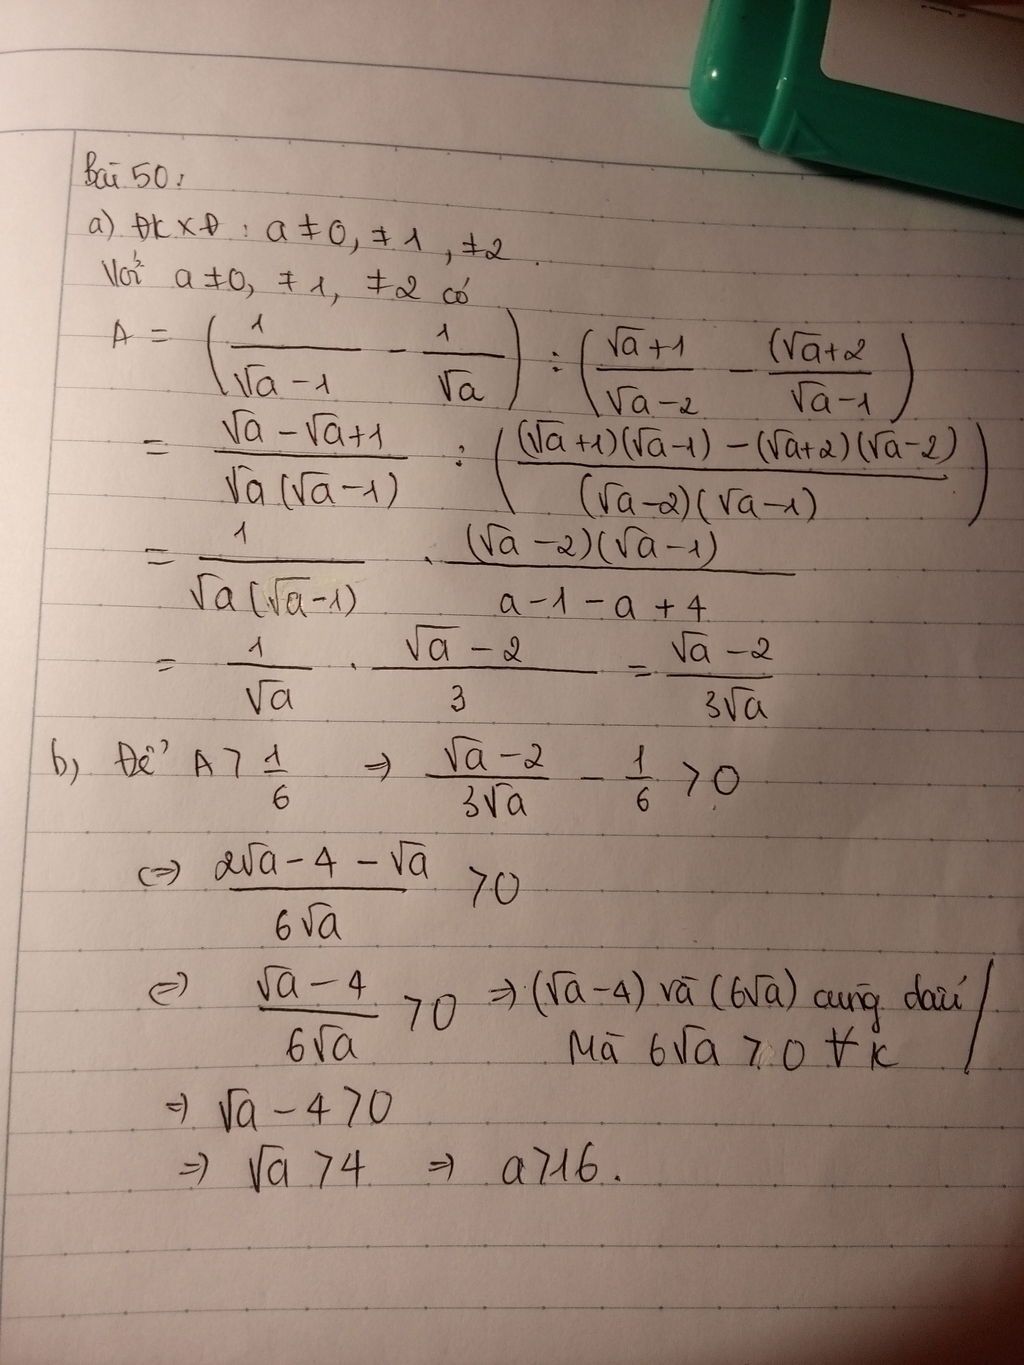 Bài 50:
a) ĐKXĐ : a ≠ 0, ≠ 1, ≠ 2.
Với a ≠ 0, ≠ 1, ≠ 2 có
A = (1/(√a − 1) − 1/√a) : ((√a + 1)/(√a − 2) − ((√a + 2)/(√a − 1))
= (√a − √a + 1)/(√a(√a − 1)) : (((√a + 1)(√a − 1) − (√a + 2)(√a − 2))/((√a − 2)(√a − 1)))
= 1/(√a(√a − 1)) . ((√a − 2)(√a − 1))/(a − 1 − a + 4)
= 1/√a . (√a − 2)/3 = (√a − 2)/(3√a)
b) Để A > 1/6 ⇒ (√a − 2)/(3√a) − 1/6 > 0
⇔ (2√a − 4 − √a)/(6√a) > 0
⇔ (√a − 4)/(6√a) > 0 ⇒ (√a − 4) và (6√a) cùng dấu /
Mà 6√a > 0 ∀ x
⇒ √a − 4 > 0
⇒ √a > 4 ⇒ a > 16.